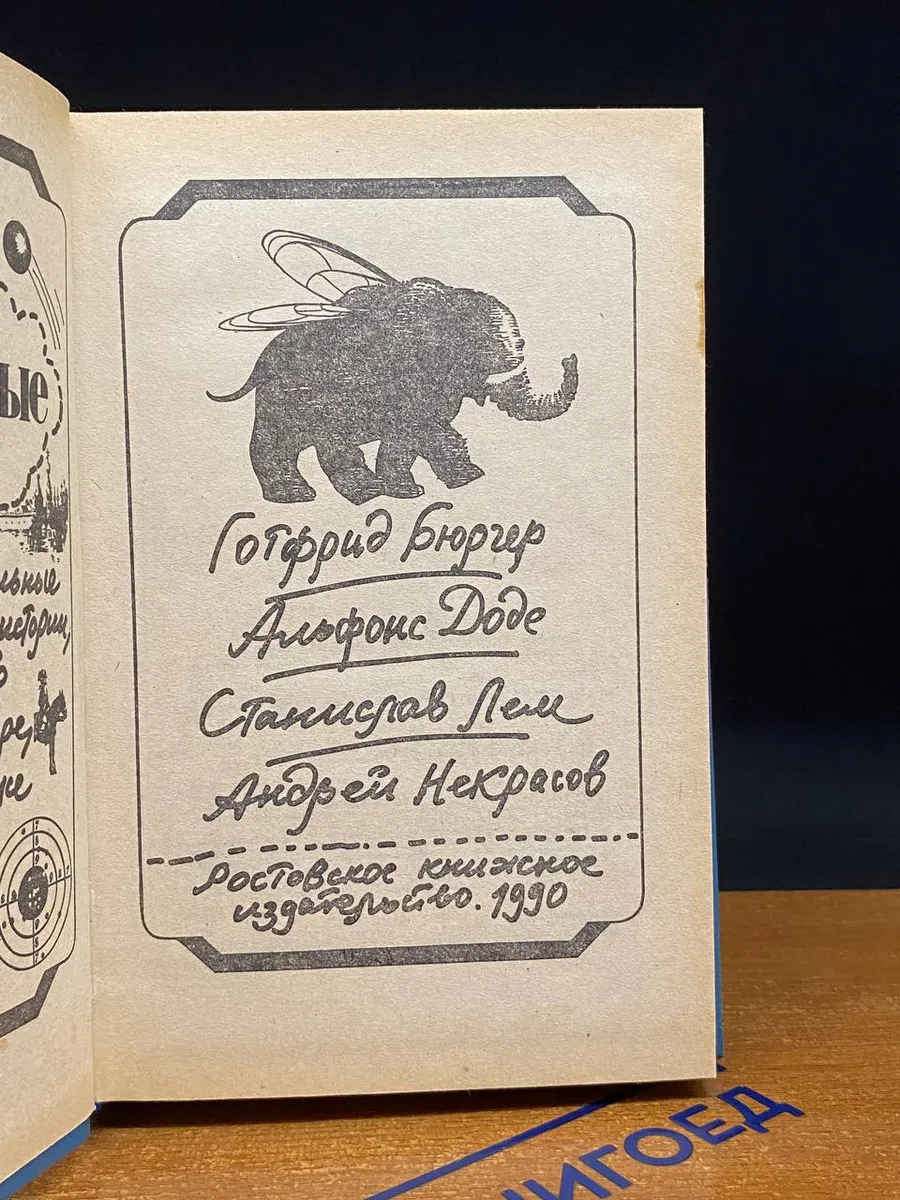 ые
льные
истории,
Готфрид Бюргер
Альфонс Доде
Станислав Лем
Андрей Некрасов
Ростовское книжное
издательство. 1990
НИГОЕД